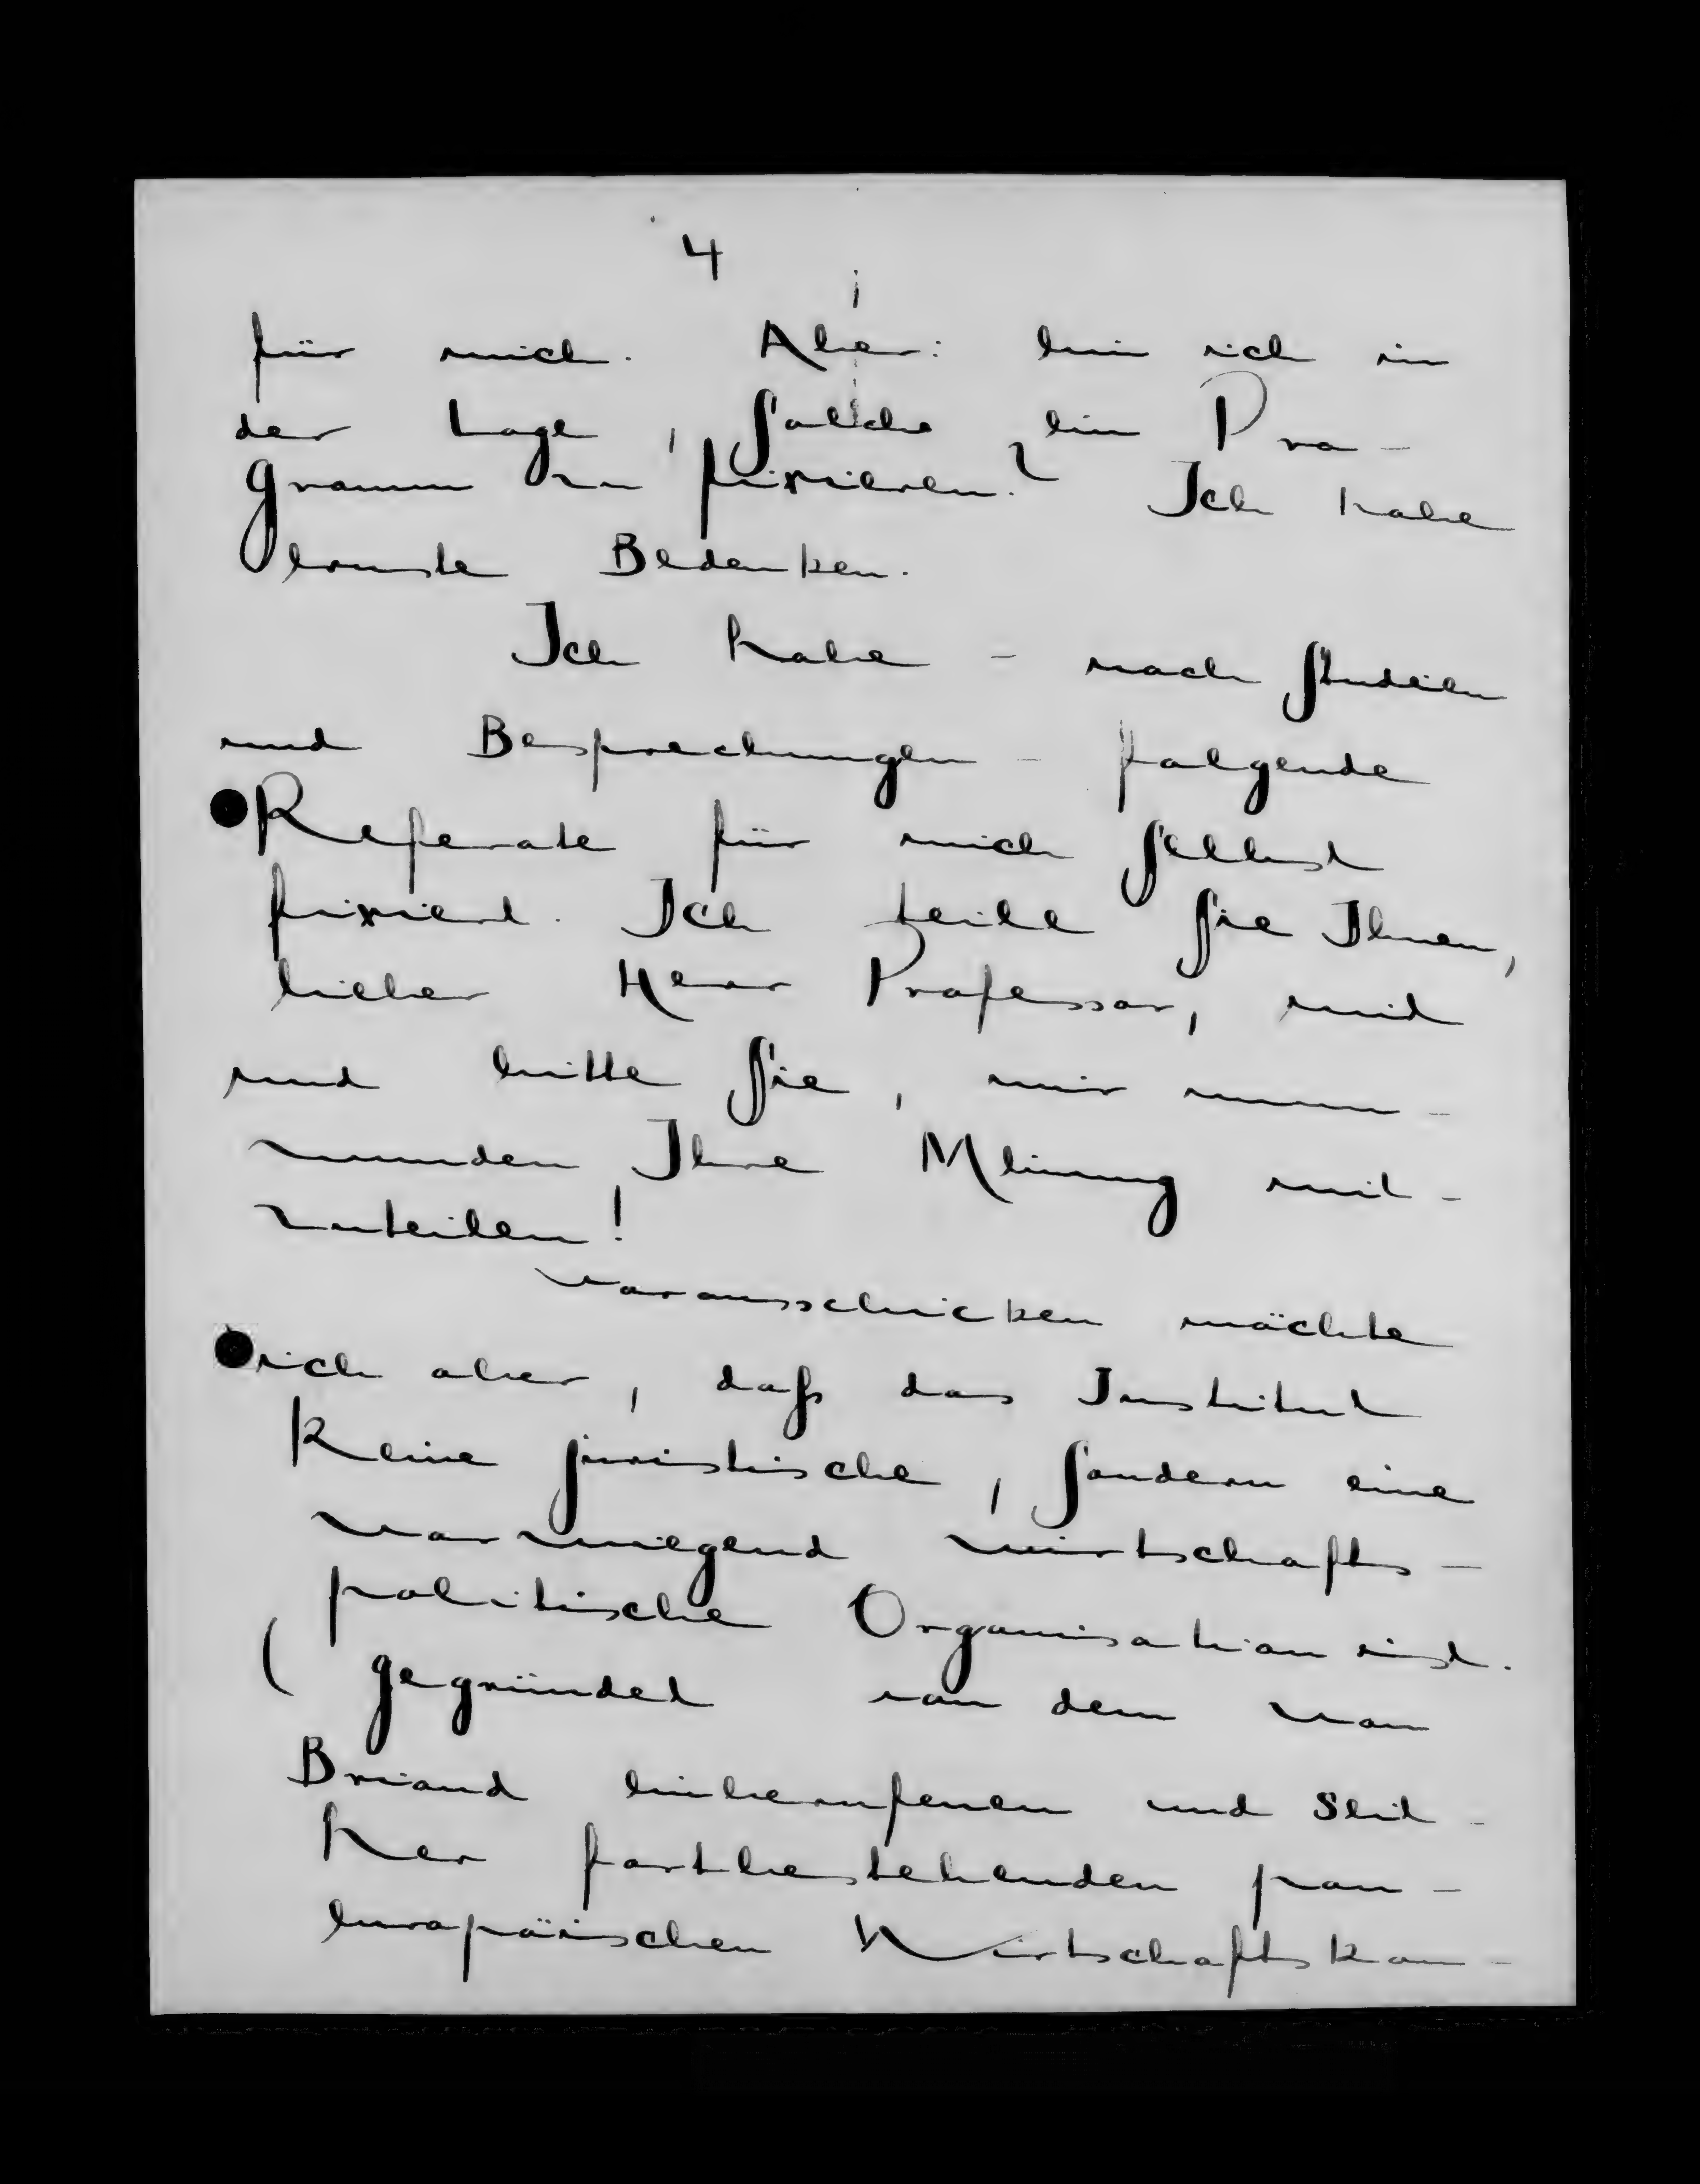 4
für mich. Aber: bin ich in
der Lage, solche ein Pro-
gramm zu fixieren? Ich habe
ernste Bedenken.
Ich habe - nach Studien
und Besprechungen - folgende
Referate für mich selbst
fixiert. Ich teile sie Ihnen,
lieber Herr Professor, mit
und bitte Sie, mir umm-
wunden Ihre Meinung mit-
zuteilen!
Vorausschicken möchte
ich aber, daß das Institut
keine juristische, sondern eine
vorwiegend wirtschafts-
politische Organisation ist.
( gegründet von dem von
Briand einberufenen und seit-
her fortbestehenden pan-
europäischen Wirtschaftskon-